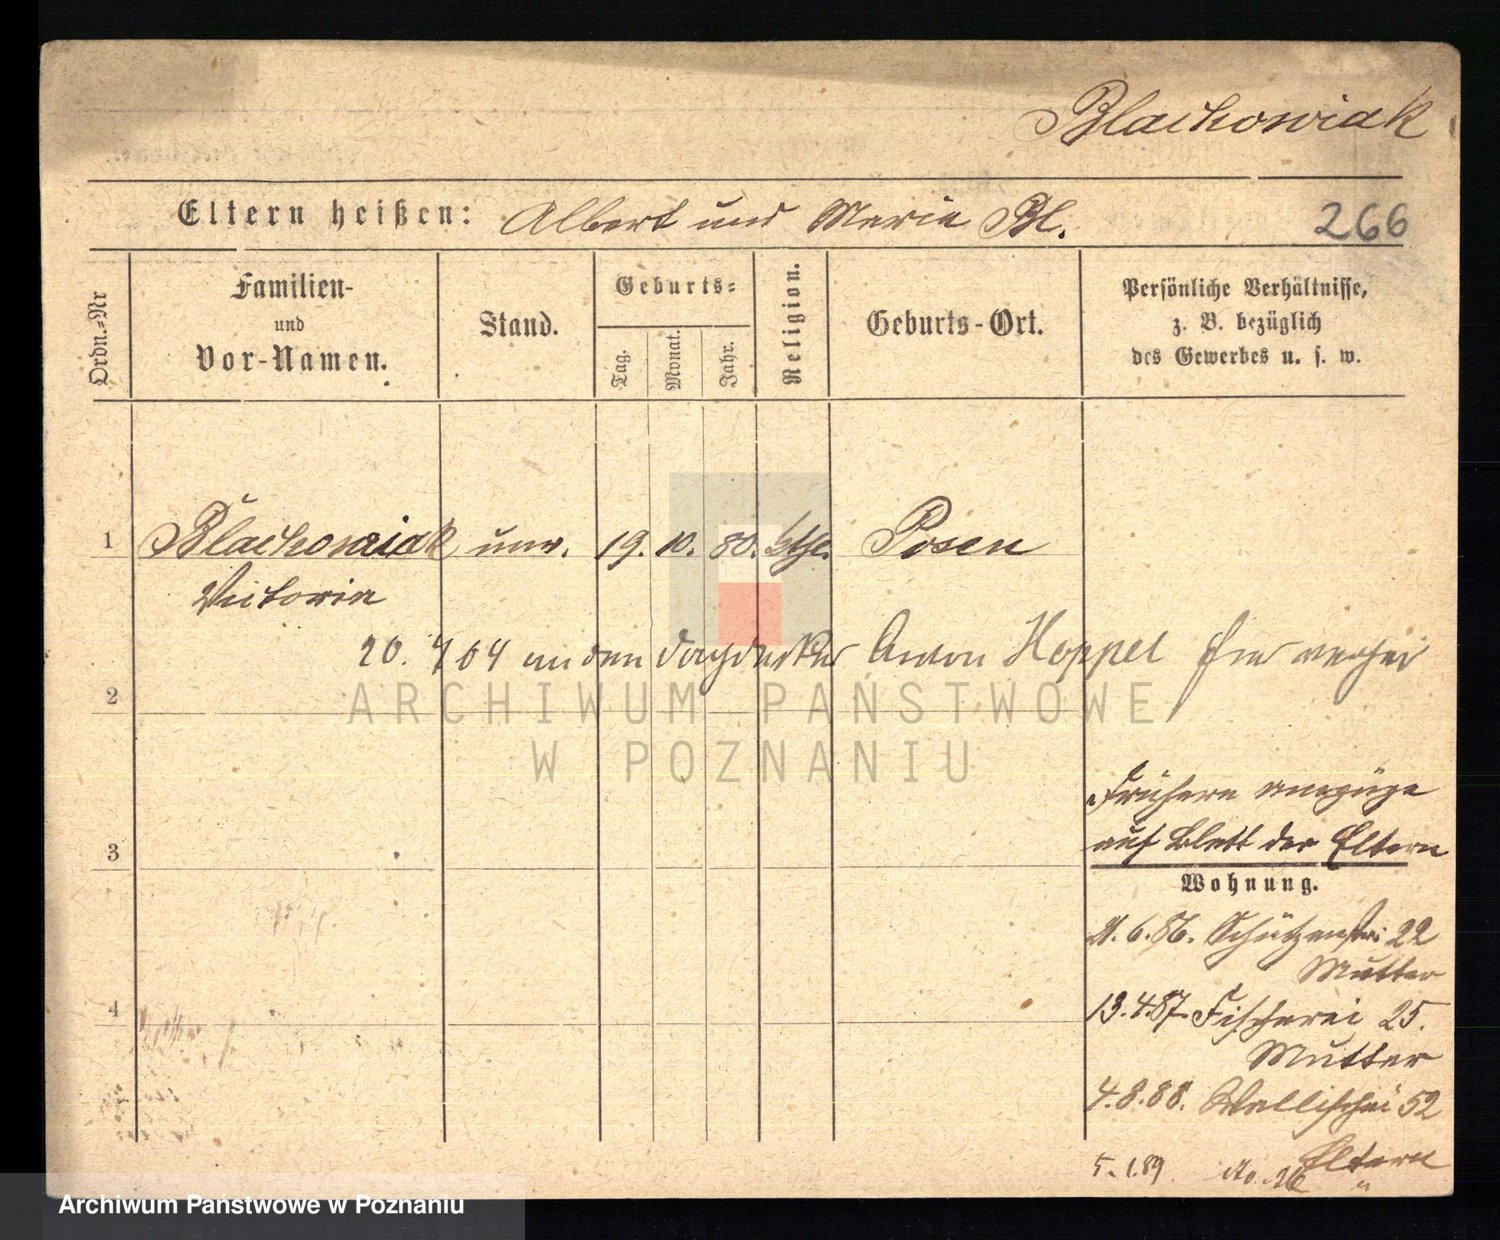 Blachowiak
Eltern heißen: Albert und Marie Bl.
266
Ordn.-Nr
Familien-
und
Vor-Namen.
Stand.
Geburts-
Tag.
Monat.
Jahr.
Religion.
Geburts-Ort.
Persönliche Verhältnisse,
z. B. bezüglich
des Gewerbes u. s. w.
1 Blachowiak unv. 19. 10. 80. kth. Posen
Victoria
20. 4 04 an den Dachdecker Anton Hoppel hier verhei
ARCHIWUM PAŃSTWOWE
W POZNANIU
2
Frühere Umzüge
auf Blatt der Eltern
3
Wohnung.
21. 6. 86. Schützenstr 22
Mutter
13. 4. 87 Fischerei 25.
Mutter
4
4. 8. 88. Wallischei 52
Eltern
5. 1. 89 No. 26 "
Archiwum Państwowe w Poznaniu